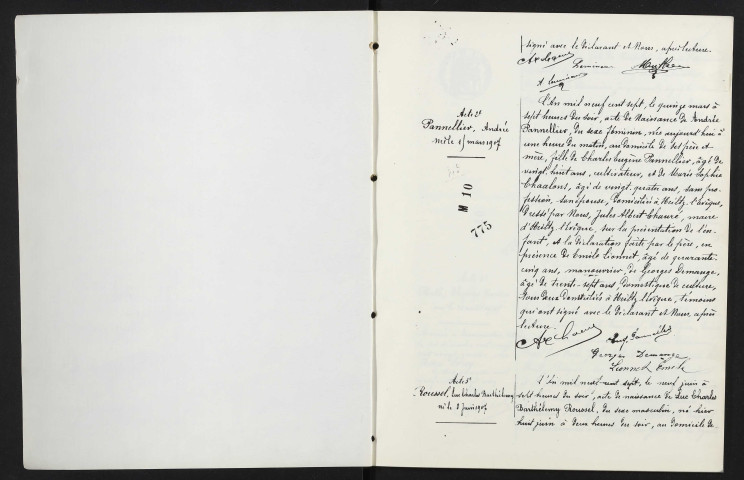 signé avec le déclarant et Nous, après lecture.
Demimeur
Acte 4
Pannellier, Andrée
née le 15 mars 1907
M 10
775
L'An mil neuf cent sept, le quinze mars à
sept heures du soir, acte de Naissance de Andrée
Pannellier, du sexe féminin, née aujourd'hui à
une heure du matin, au domicile de ses père et
mère, fille de Charles Eugène Pannellier, âgé de
vingt huit ans, cultivateur, et de Marie Sophie
Chaalons, âgée de vingt quatre ans, sans pro-
fession, son épouse, domiciliés à Heiltz l'Evêque,
Dressé par Nous, Jules Albert Chauré, maire
d'Heiltz l'Evêque, sur la présentation de l'en-
fant, et la déclaration faite par le père, en
présence de Emile Lionnet, âgé de quarante
cinq ans, manouvrier, de Georges Demange,
âgé de trente-sept ans, domestique de culture,
tous deux domiciliés à Heiltz l'Evêque, témoins
qui ont signé avec le déclarant et Nous, après
lecture.
Georges Demange
Lionnet Emile
Acte 5
Roussel, Luc Charles Barthélemy
né le 8 juin 1907
L'An mil neuf cent sept, le neuf juin à
sept heures du soir, acte de naissance de Luc Charles
Barthélemy Roussel, du sexe masculin, né hier
huit juin à deux heures du soir, au domicile de